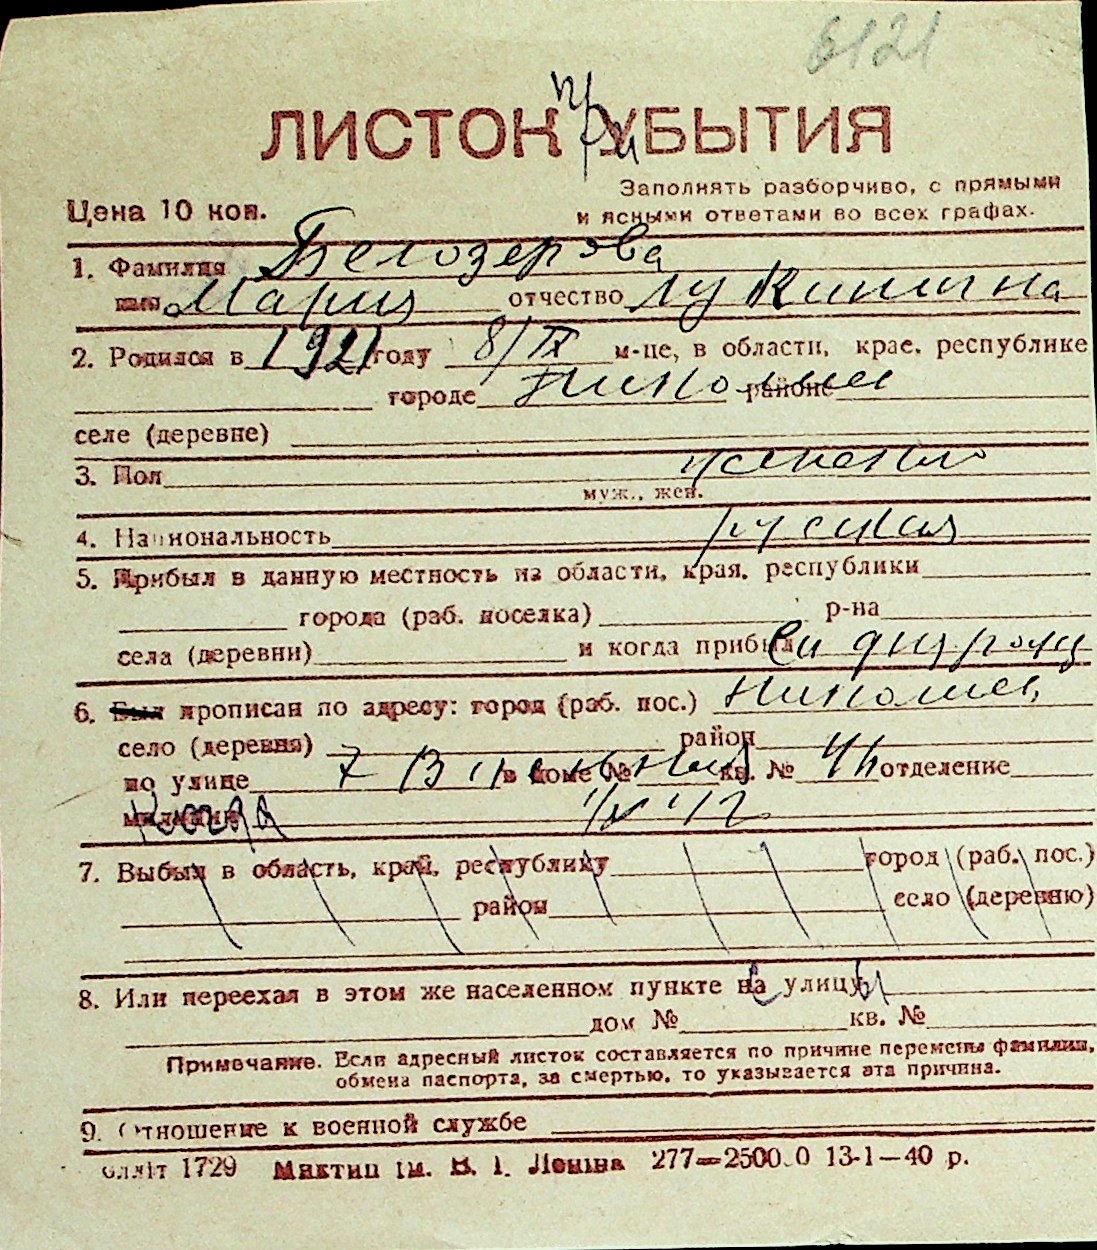 6121
ЛИСТОК при УБЫТИЯ
Заполнять разборчиво, с прямыми
Цена 10 коп.
и ясными ответами во всех графах.
1. Фамилия Белозерова
имя Мария отчество Лукинична
2. Родился в 1921 году 8/IX м-це, в области, крае, республике
городе Николаев районе
селе (деревне)
3. Пол женский
муж., жен.
4. Национальность русская
5. Прибыл в данную местность из области, края, республики
города (раб. поселка) р-на
села (деревни) и когда прибыл
6. Был прописан по адресу: город (раб. пос.) Николаев
село (деревня) район
по улице 7 в доме № кв. № отделение
милиции
7. Выбыл в область, край, республику город (раб. пос.)
район село (деревню)
8. Или переехал в этом же населенном пункте на с улицу ы
дом № кв. №
Примечание. Если адресный листок составляется по причине перемены фамилии,
обмена паспорта, за смертью, то указывается эта причина.
9. Отношение к военной службе
1729 ім. В. І. Леніна 277—25000 13-1—40 р.